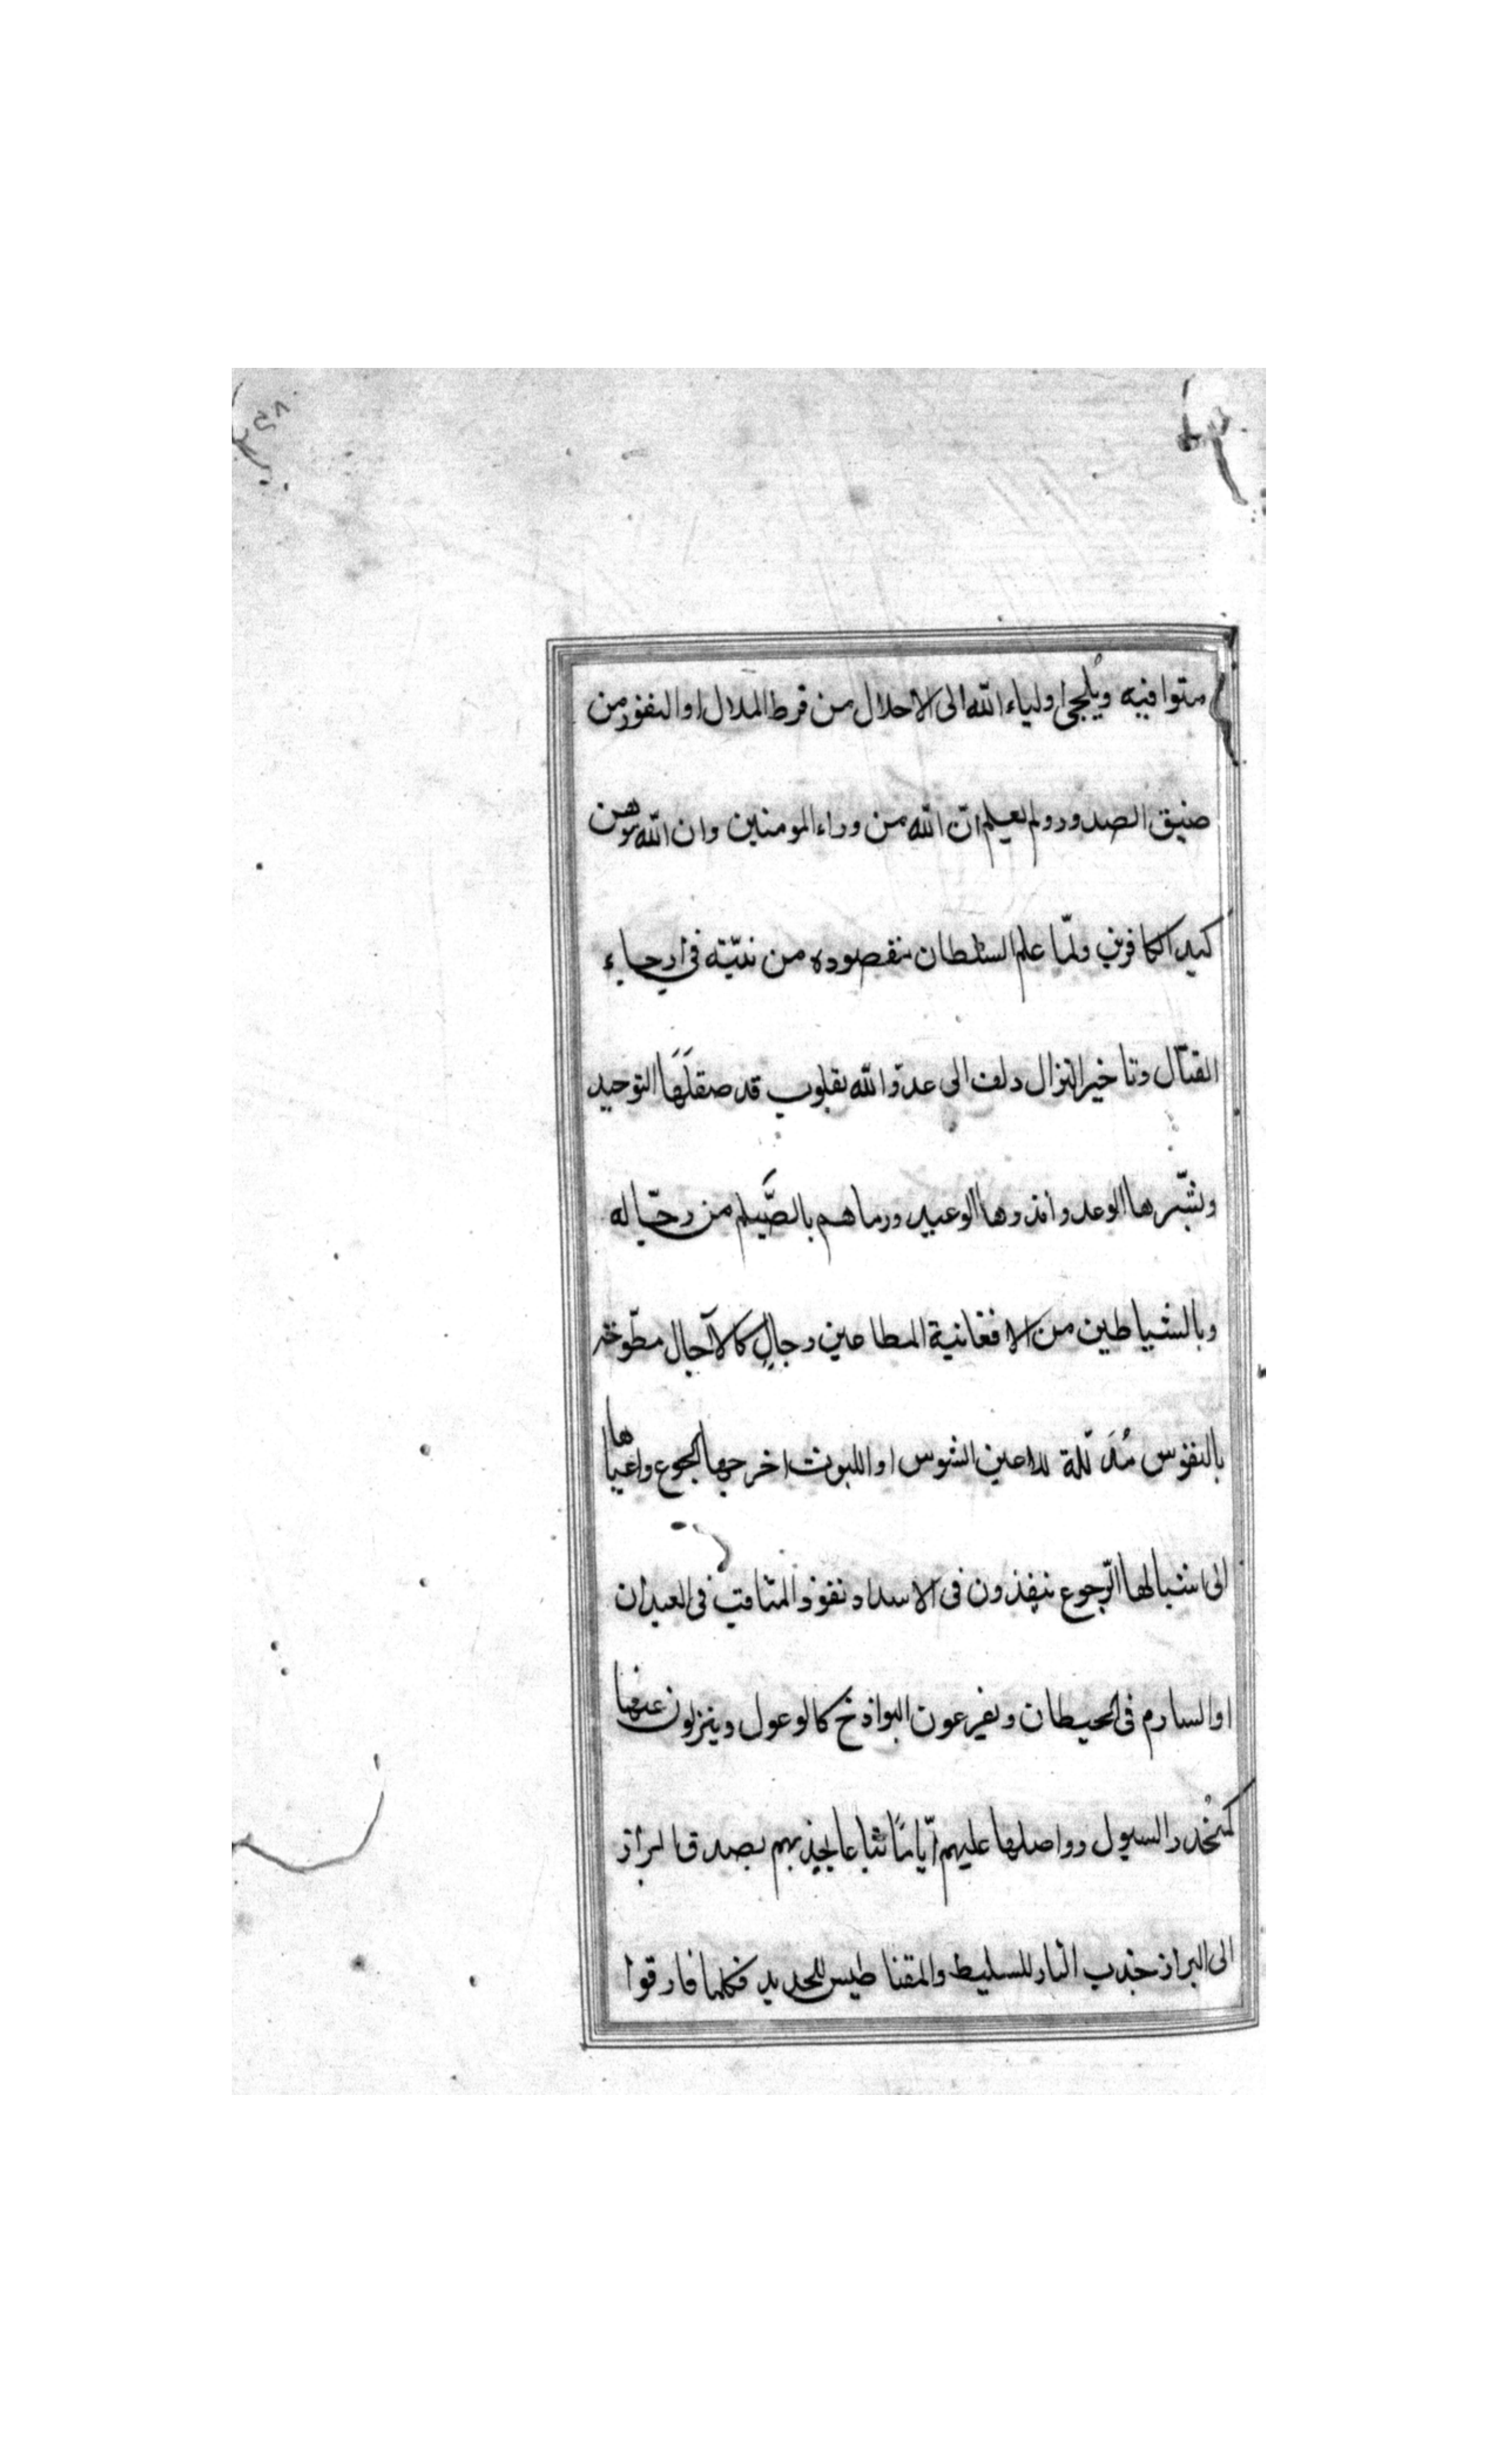 متوافيه ويُلجى اولياء الله الى الاحلال من فرط الملال او النفور من
ضيق الصدور ولم يعلم انّ الله من وراء المومنين وان الله موهن
كيد الكافرين ولمّا علم السلطان بمقصوده من نيّته فى ارجاء
القتال وتاخير النزال دلف الى عدوّ الله بقلوب قد صقلَهَا التوحيد
وبشّرها الوعد وانذرها الوعيد ورماهم بالصَّيلم من رجّاله
وبالشياطين من الافغانية المطاعين رجالٍ كالآجال مطوّحة
بالنفوس مُدَلّلة للاعين الشوس او اللبوث اخرجها الجوع واعياها
الى اشبالها الرّجوع ينفذون فى الاسداد نفوذ المثاقب فى العيدان
او السارم فى الحيطان ويفرعون البواذخ كالوعول وينزلون عنها
كمُنحَدر السيول وواصلها عليهم ايّامًا تباعا يجذبهم بصدق البراز
الى البراز جذب النار للسليط والمقناطيس للحديد فكلما فارقوا